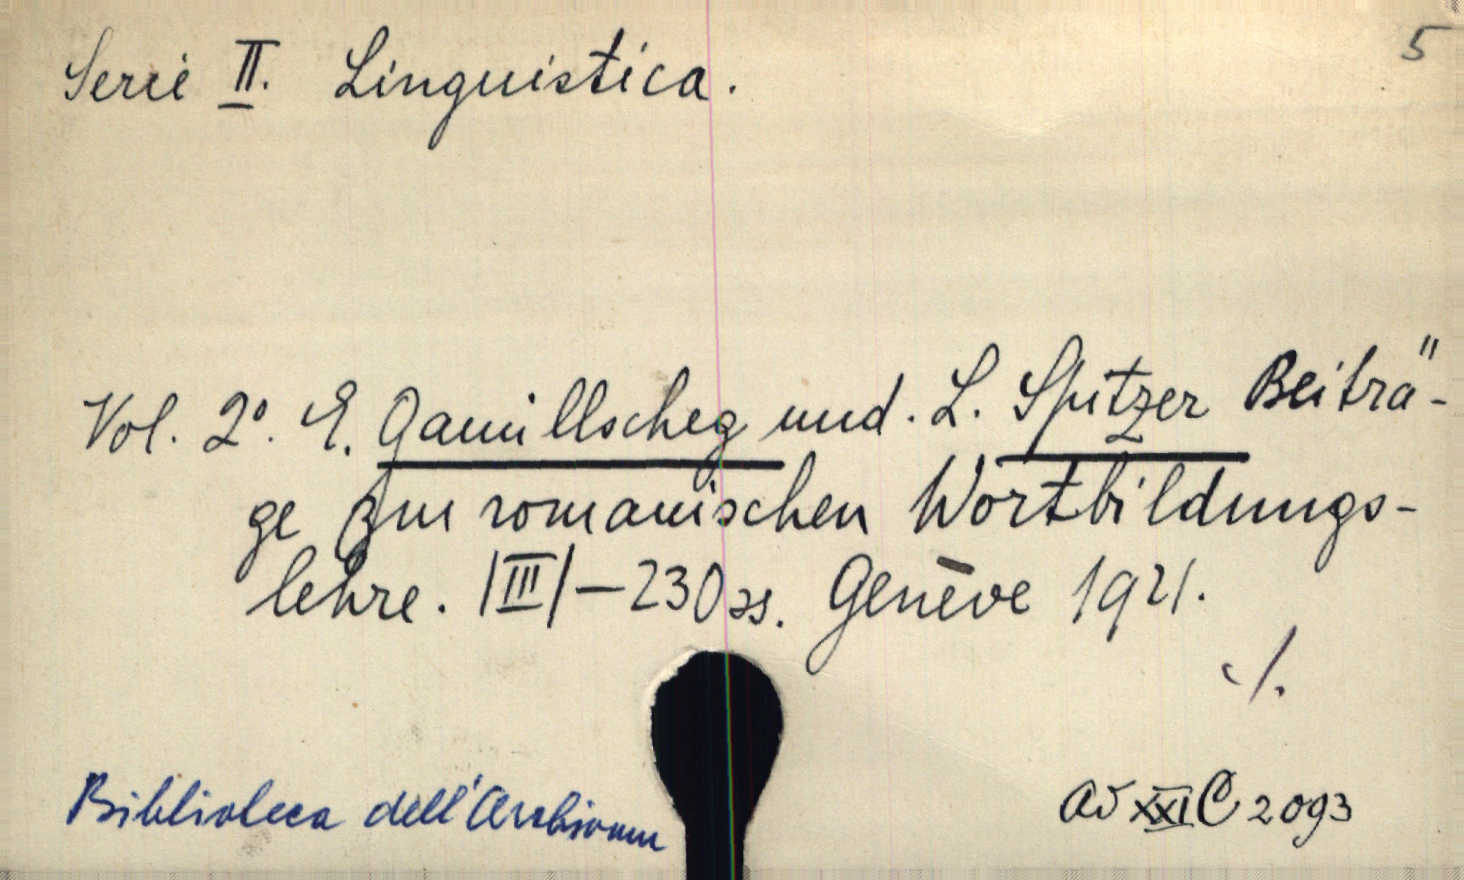 5
Serie II. Linguistica.
Vol. 2°. E. Gamillscheg und. L. Spitzer Beiträ-
ge zur romanischen Wortbildungs-
lehre. |III|-230 ss. Genève 1921.
./.
Biblioteca dell'Archivum
ad XXI C 2093